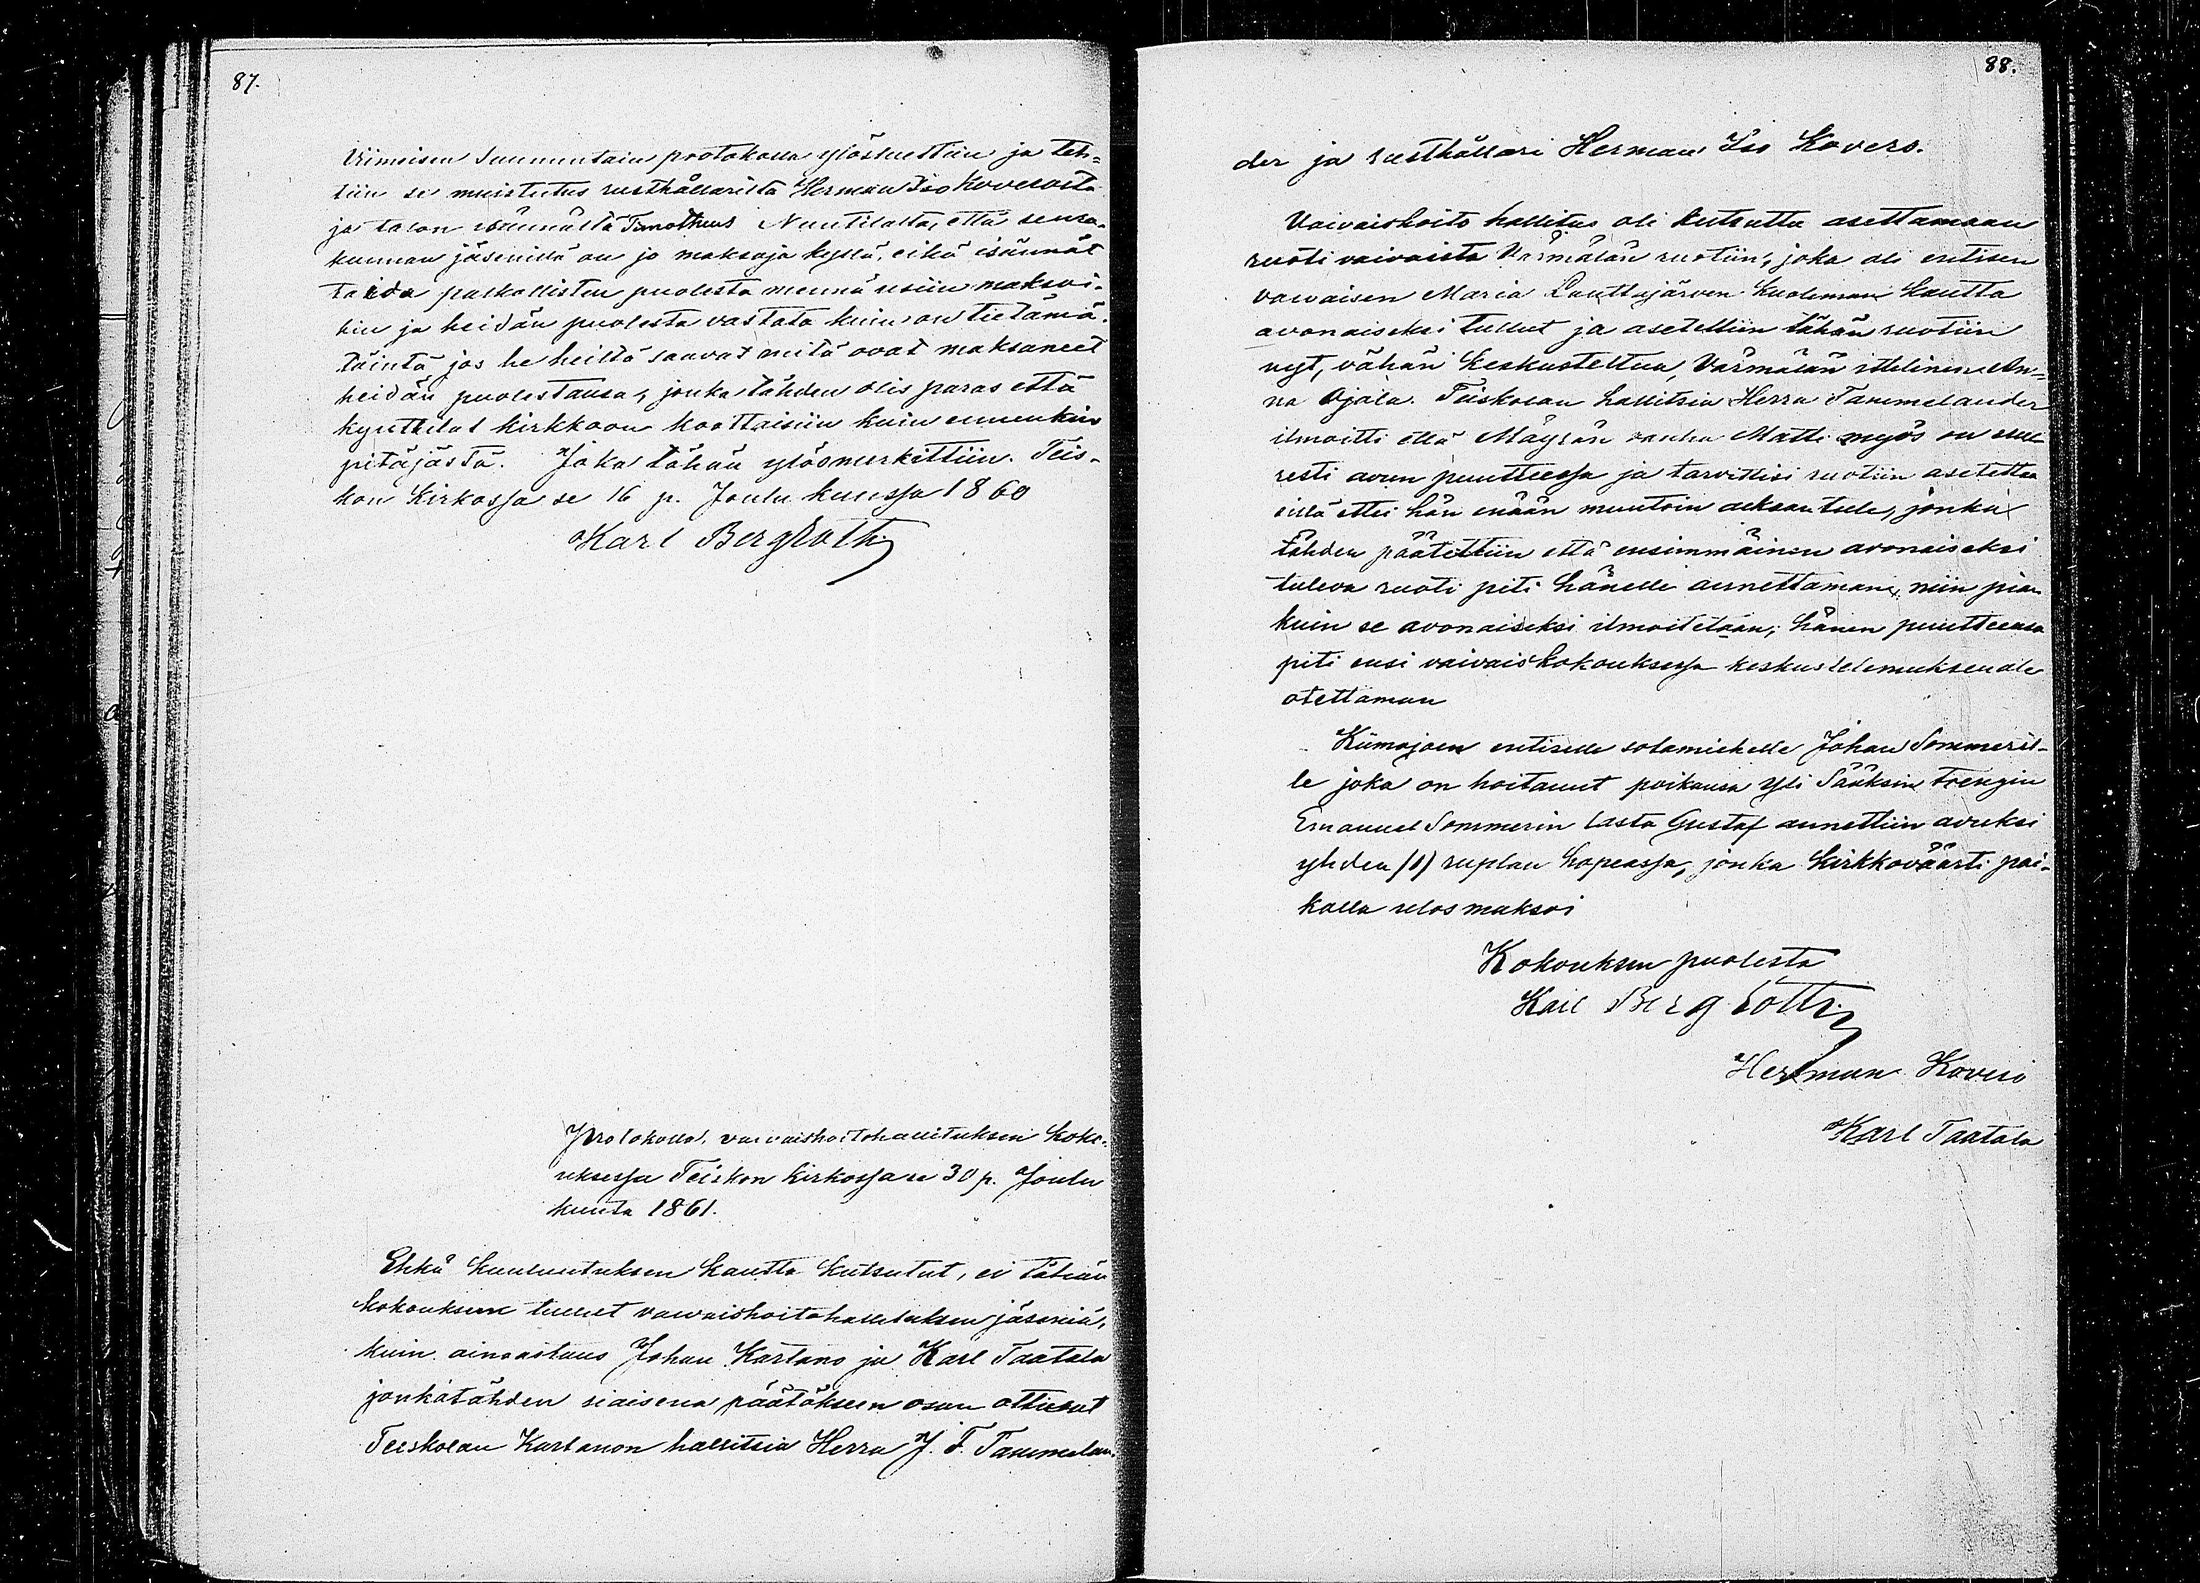 87.
Viimeisen Sunnuntain protokolla ylösluettiin ja teh=
tiin se muistutus rusthållarilta Herman Iso Koverosta
ja talon isännältä Timotheus Nuutilalta, että seura-
kunnan jäsenillä on jo maksoja kyllä, eikä isännät
taida palkollisten puolesta mennä usiin maksoi-
hin ja heidän puolesta vastata kuin on tietämä-
töintä jos he heiltä saavat mitä ovat maksaneet
heidän puolestansa, jonka tähden olis paras että
kynttilat kirkkoon koottaisiin kuin ennenkin
pitäjästä. Joka tähän ylösmerkittiin. Teis-
kon Kirkossa se 16 p. Joulu kuussa 1860
Karl Bergroth
Protokolla, vaivaishoitohallituksen koko-
uksessa Teiskon Kirkossa se 30 p. Joulu
kuuta 1861.
Ehkä kuulutuksen kautta kutsutut, ei tähän
kokouksen tullut vaivaishoitohallituksen jäseniä,
kuin ainoastans Johan Kartano ja Karl Taatala
jonkatähden siaisena päätökseen osan ottivat
Teiskolan Kartanon hallitsia Herra J. F. Tammelan-
88.
der ja rusthållari Herman Iso Kovero.
Vaivaishoito hallitus oli kutsuttu asettamaan
ruotivaivaista Värmälän ruotiin, joka oli entisen
vaivaisen Maria Lauttajärven kuoleman kautta
avonaiseksi tullut ja asetettiin tähän ruotiin
nyt, vähän keskusteltua, Värmälän itellinen An=
na Ojala. Teiskolan hallitsia Herra Tammelander
ilmoitti että Mäyrän vanha Matti myös on suu
resti avun puutteessa ja tarvittisi ruotiin asetettaa
sillä ettei hän enään muutoin aikaan tule, jonka
tähden päätettiin että ensimmäinen avonaiseksi
tuleva ruoti piti hänelle annettaman, niin pian
kuin se avonaiseksi ilmoitetaan; hänen puutteensa
piti ensi vaivaiskokouksessa keskustelemuksen ale
otettaman
Kiimajoen entiselle sotamiehelle Johan Sommeril-
le joka on hoitanut poikansa Yli Sääksin trengin
Emanuel Sommerin lasta Gustaf annettiin avuksi
yhden /1/ ruplan hopeassa, jonka kirkkoväärti pai-
kalla ulos maksoi
Kokouksen puolesta
Karl Bergroth
Herman Kovero
Karl Taatala